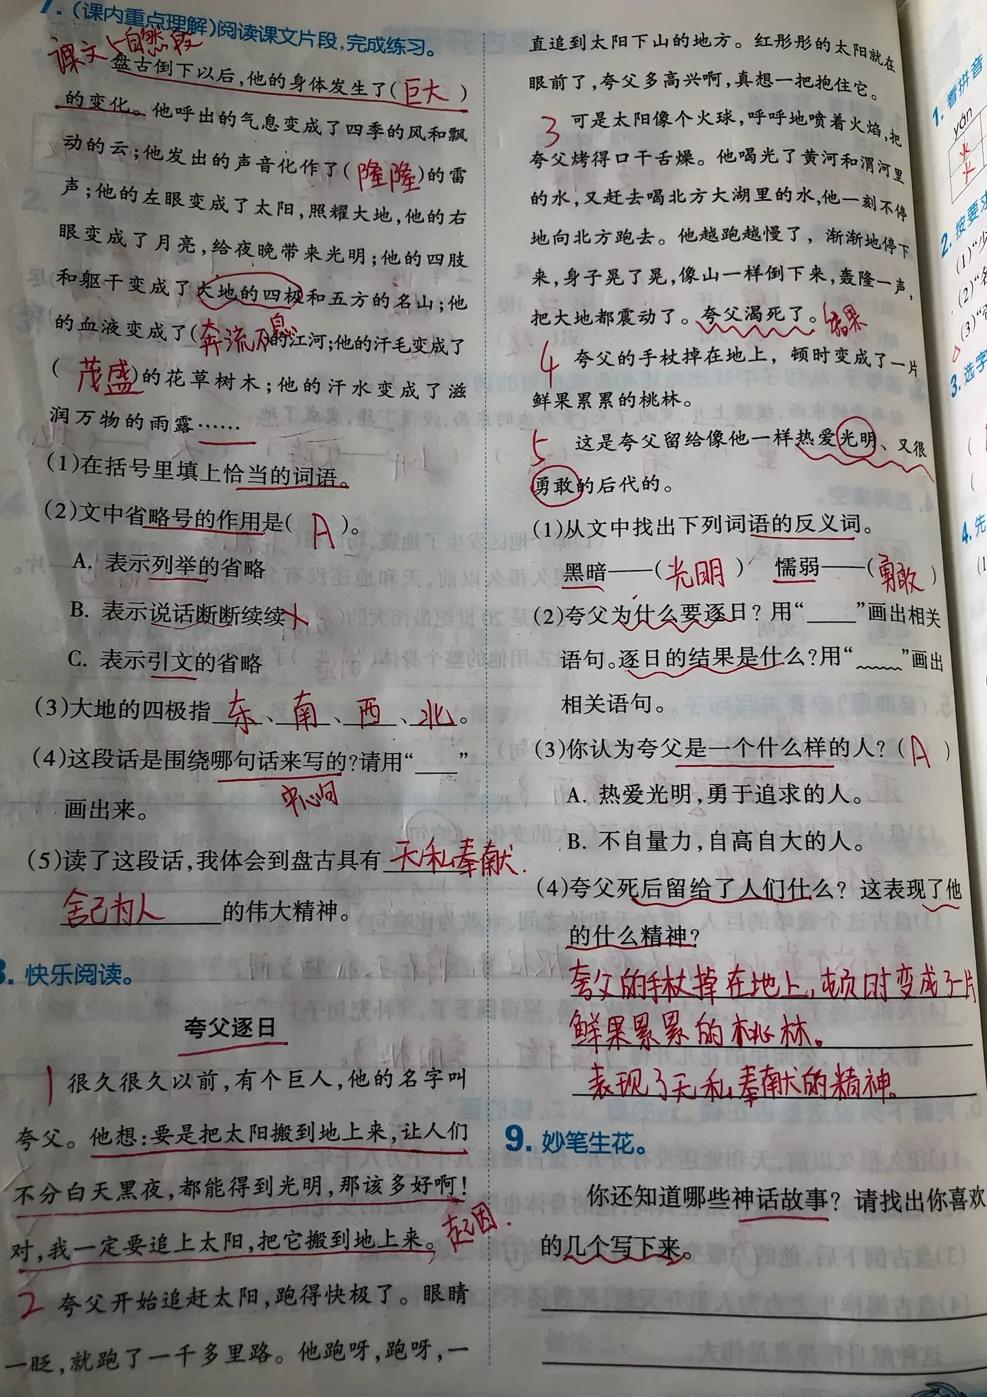 7.(课内重点理解)阅读课文片段,完成练习。
课文 自然段
盘古倒下以后,他的身体发生了(巨大)
的变化。他呼出的气息变成了四季的风和飘
动的云;他发出的声音化作了(隆隆)的雷
声;他的左眼变成了太阳,照耀大地,他的右
眼变成了月亮,给夜晚带来光明;他的四肢
和躯干变成了大地的四极和五方的名山;他
的血液变成了(奔流不息)的江河;他的汗毛变成了
(茂盛)的花草树木;他的汗水变成了滋
润万物的雨露……
(1)在括号里填上恰当的词语。
(2)文中省略号的作用是(A)。
A. 表示列举的省略
B. 表示说话断断续续
C. 表示引文的省略
(3)大地的四极指 东、南、西、北。
(4)这段话是围绕哪句话来写的?请用“____”
中心句
画出来。
(5)读了这段话,我体会到盘古具有 无私奉献.
舍己为人 的伟大精神。
8. 快乐阅读。
夸父逐日
1 很久很久以前,有个巨人,他的名字叫
夸父。他想:要是把太阳搬到地上来,让人们
不分白天黑夜,都能得到光明,那该多好啊!
对,我一定要追上太阳,把它搬到地上来。起因.
2 夸父开始追赶太阳,跑得快极了。眼睛
一眨,就跑了一千多里路。他跑呀,跑呀,一
直追到太阳下山的地方。红彤彤的太阳就在
眼前了,夸父多高兴啊,真想一把抱住它。
3 可是太阳像个火球,呼呼地喷着火焰,把
夸父烤得口干舌燥。他喝光了黄河和渭河里
的水,又赶去喝北方大湖里的水,他一刻不停
地向北方跑去。他越跑越慢了,渐渐地停下
来,身子晃了晃,像山一样倒下来,轰隆一声,
把大地都震动了。夸父渴死了。结果
4 夸父的手杖掉在地上,顿时变成了一片
鲜果累累的桃林。
5 这是夸父留给像他一样热爱光明、又很
勇敢的后代的。
(1)从文中找出下列词语的反义词。
黑暗——(光明) 懦弱——(勇敢)
(2)夸父为什么要逐日?用“____”画出相关
语句。逐日的结果是什么?用“﹏﹏”画出
相关语句。
(3)你认为夸父是一个什么样的人?(A)
A. 热爱光明,勇于追求的人。
B. 不自量力,自高自大的人。
(4)夸父死后留给了人们什么?这表现了他
的什么精神?
夸父的手杖掉在地上,顿时变成了一片
鲜果累累的桃林。
表现了无私奉献的精神。
9. 妙笔生花。
你还知道哪些神话故事?请找出你喜欢
的几个写下来。
1. 看拼音
yán
炎
2. 按要求
(1)“少
(2)“名
3. 选字
4. 先